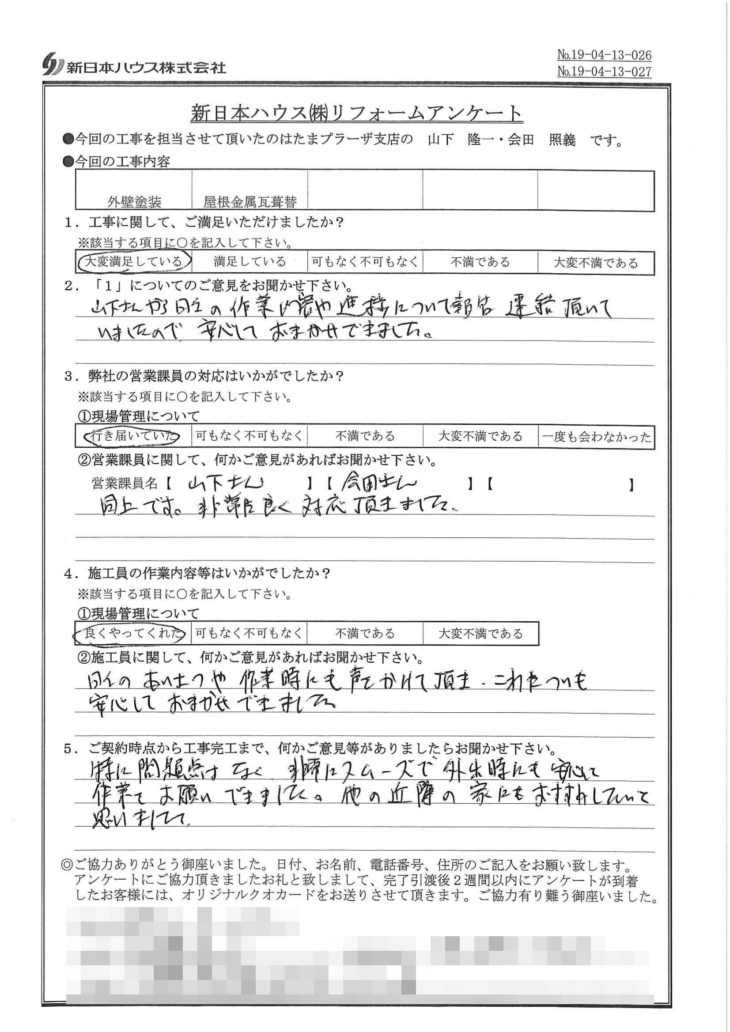 新日本ハウス株式会社
№19-04-13-026
№19-04-13-027
新日本ハウス㈱リフォームアンケート
●今回の工事を担当させて頂いたのはたまプラーザ支店の 山下 隆一・会田 照義 です。
●今回の工事内容
外壁塗装 屋根金属瓦葺替
1．工事に関して、ご満足いただけましたか？
※該当する項目に○を記入して下さい。
大変満足している 満足している 可もなく不可もなく 不満である 大変不満である
2．「1」についてのご意見をお聞かせ下さい。
山下さんから日々の作業内容や進捗について報告 連絡 頂いて
いましたので 安心して おまかせできました。
3．弊社の営業課員の対応はいかがでしたか？
※該当する項目に○を記入して下さい。
①現場管理について
行き届いていた 可もなく不可もなく 不満である 大変不満である 一度も会わなかった
②営業課員に関して、何かご意見があればお聞かせ下さい。
営業課員名【 山下さん 】【 会田さん 】【 】
同上です。非常に良く 対応頂きました。
4．施工員の作業内容等はいかがでしたか？
※該当する項目に○を記入して下さい。
①現場管理について
良くやってくれた 可もなく不可もなく 不満である 大変不満である
②施工員に関して、何かご意見があればお聞かせ下さい。
日々の あいさつや 作業時にも 声をかけて頂き
安心して おまかせできました
5．ご契約時点から工事完工まで、何かご意見等がありましたらお聞かせ下さい。
特に問題点は なく 非常にスムーズで 外出時にも 安心して
作業を お願いできました。他の近隣の 家にも おすすめしたいと
思いました
◎ご協力ありがとう御座いました。日付、お名前、電話番号、住所のご記入をお願い致します。
アンケートにご協力頂きましたお礼と致しまして、完了引渡後2週間以内にアンケートが到着
したお客様には、オリジナルクオカードをお送りさせて頂きます。ご協力有り難う御座いました。